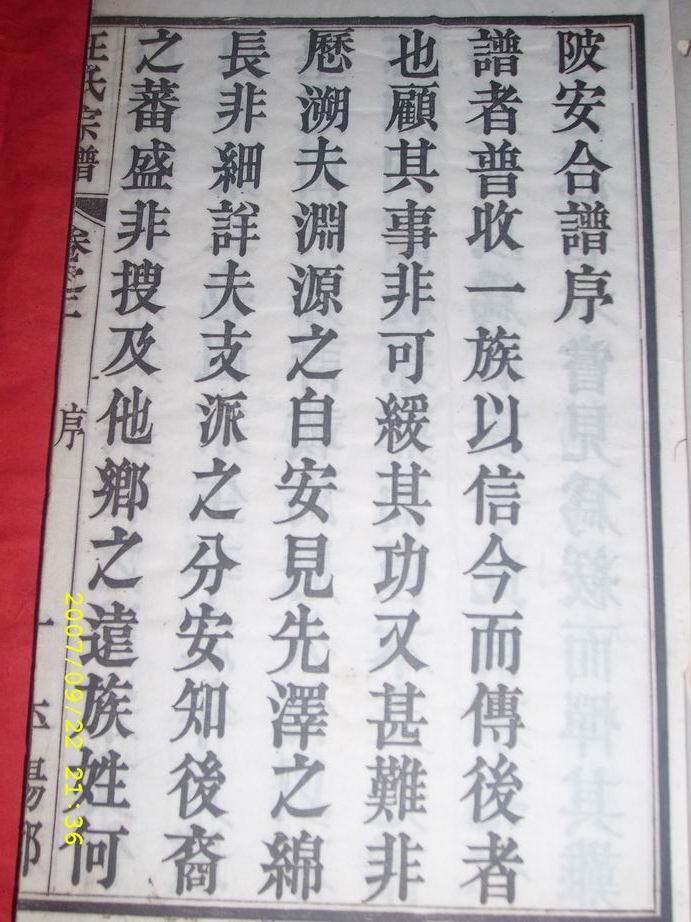 陂安合譜序
譜者普收一族以信今而傳後者
也顧其事非可緩其功又甚難非
歷溯夫淵源之自安見先澤之綿
長非細詳夫支派之分安知後裔
之蕃盛非搜及他鄉之遠族姓何
氏宗譜 卷之三 序 一
2007/09/22 21:36